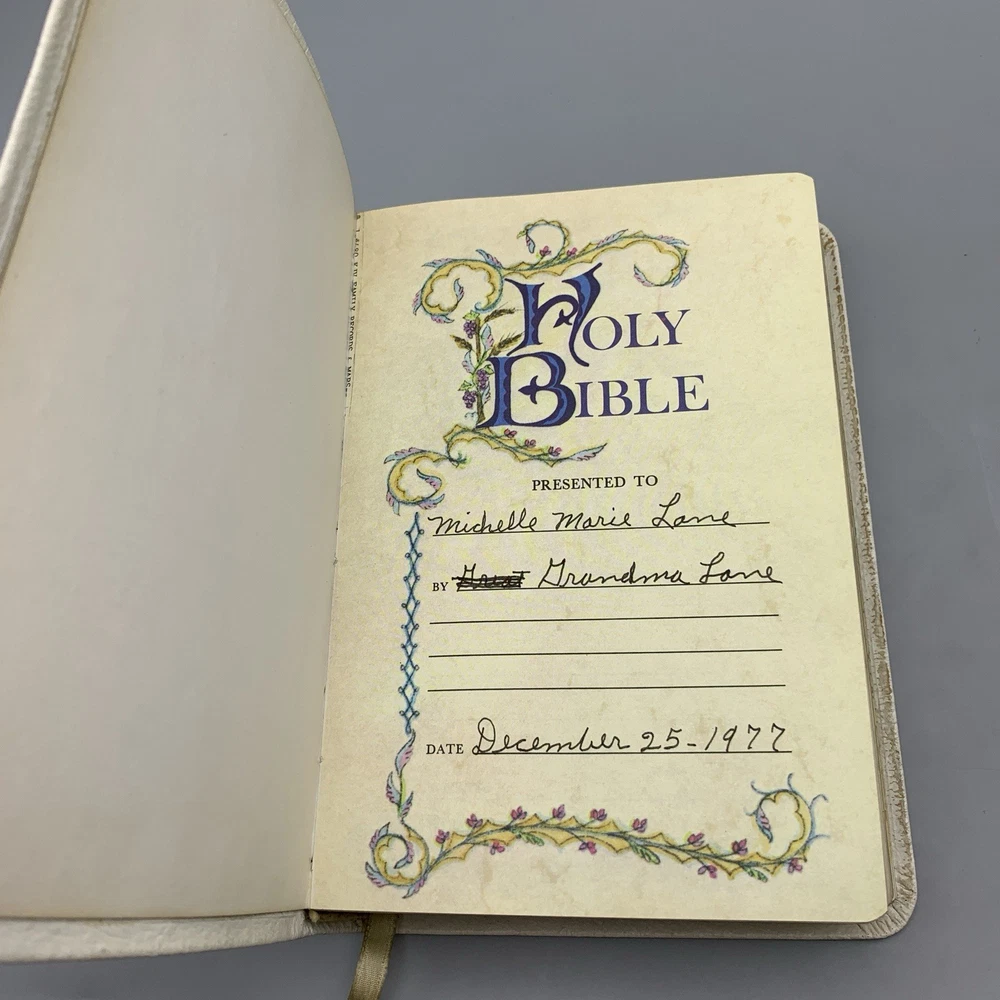 HOLY
BIBLE
PRESENTED TO
Michelle Marie Lane
BY Great Grandma Lane
DATE December 25-1977